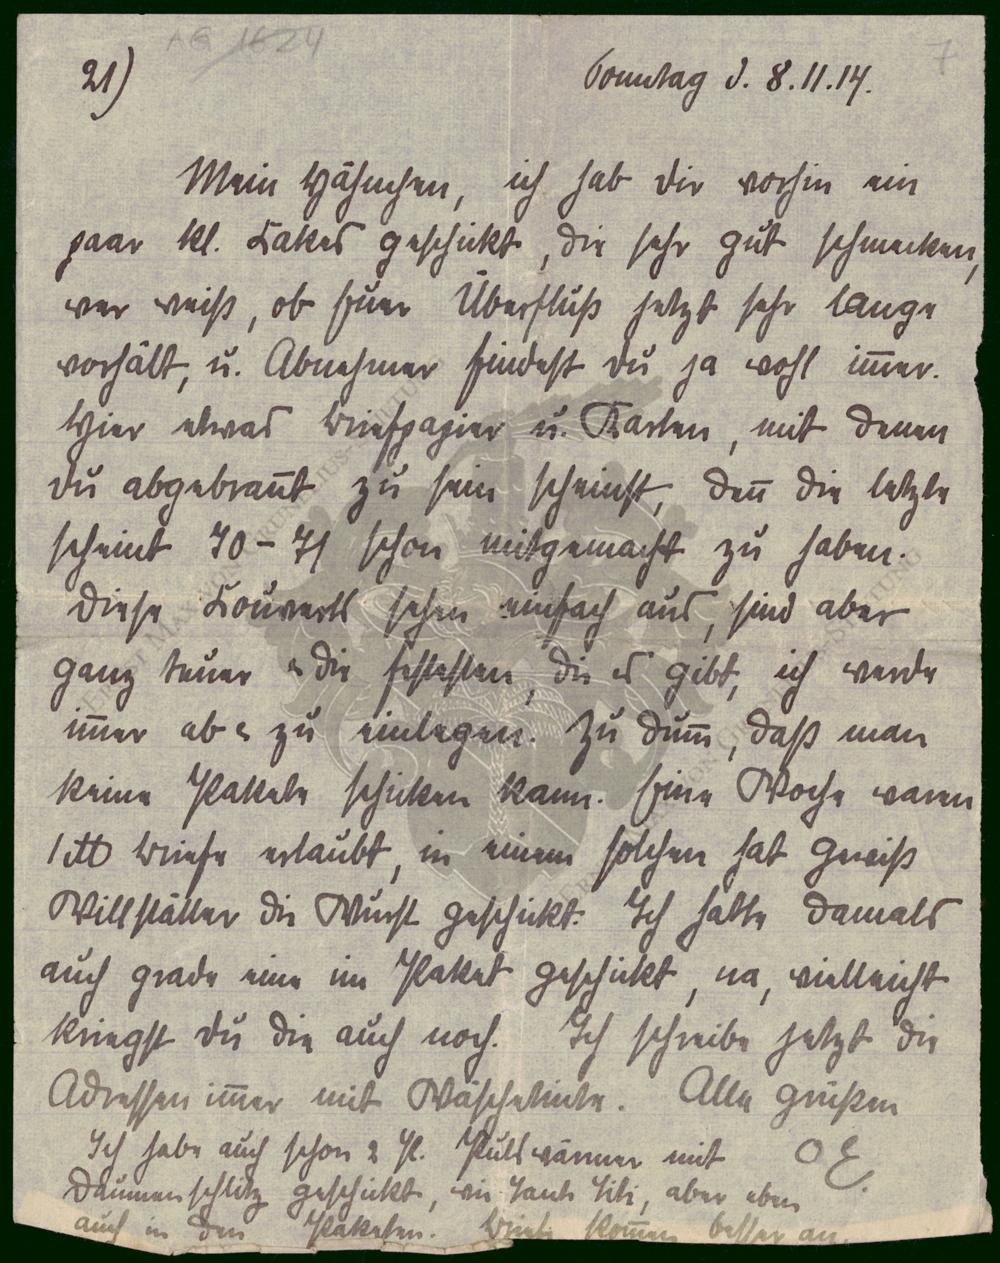 AG 1624
7
21)
Sonntag d. 8.11.14.
Mein Hähnchen, ich hab dir vorhin ein
paar kl. Cakes geschickt, die sehr gut schmecken,
wer weiß, ob Euer Überfluß jetzt sehr lange
vorhält, u. Abnehmer findest Du ja wohl im̅er.
Hier etwas Briefpapier u. Karten, mit denen
Du abgebran̅t zu sein scheinst, den̅ die letzte
scheint 70-71 schon mitgemacht zu haben.
Diese Couverts sehen einfach aus, sind aber
ganz teuer & die festesten, die es gibt, ich werde
im̅er ab & zu einlegen. Zu dum̅, daß man
keine Pakete schicken kann. Eine Woche waren
1 ℔ Briefe erlaubt, in einem solchen hat gewiß
Willstätter die Wurst geschickt. Ich hatte damals
auch grade eine im Paket geschickt, na, vielleicht
kriegst Du die auch noch. Ich schreibe jetzt die
Adressen im̅er mit Wäschetinte. Alle grüßen
OE.
Ich habe auch schon 2 P. Pulswärmer mit
Daumenschlitz geschickt, wie Tante Titi, aber eben
auch in den Paketen. Briefe kom̅en besser an.